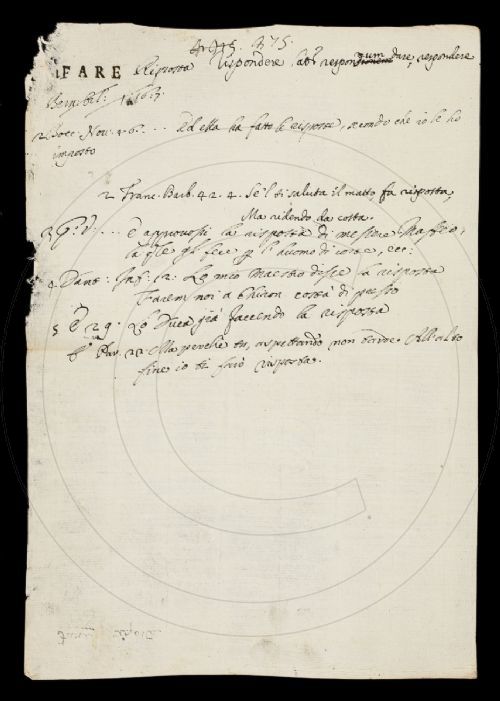 375.
FARE Risposta Rispondere, lat. responsum dare, respondere
Bocc. Nov. Ed ella ha fatto le risposte, secondo che io le ho
imposto
2 Franc. Barb. 42. 4. Se'l ti saluta il matto, fa risposta,
Ma ridendo da costa.
3 G: V. ... E di
la risposta di messere
la qle gli fece
4 Dant: Inf: 12. Lo mio Maestro disse la risposta
Farem noi a Chiron costà di presso
5 E 29. Lo Duca già facendo la risposta
6 Par. Ma perche tu, aspettando non tarde All'alto
fine io ti farò risposta.